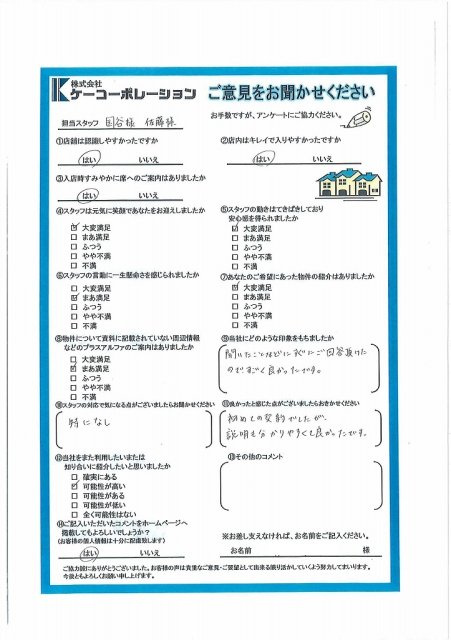 株式会社
ケーコーポレーション
ご意見をお聞かせください
担当スタッフ 国谷様 佐藤様
お手数ですが、アンケートにご協力ください。
①店舗は認識しやすかったですか
はい いいえ
②店内はキレイで入りやすかったですか
はい いいえ
③入店時すみやかに席へのご案内はありましたか
はい いいえ
④スタッフは元気に笑顔であなたをお迎えしましたか
☑ 大変満足
□ まあ満足
□ ふつう
□ やや不満
□ 不満
⑤スタッフの動きはてきぱきしており
安心感を得られましたか
☑ 大変満足
□ まあ満足
□ ふつう
□ やや不満
□ 不満
⑥スタッフの言動に一生懸命さを感じられましたか
□ 大変満足
☑ まあ満足
□ ふつう
□ やや不満
□ 不満
⑦あなたのご希望にあった物件の紹介はありましたか
☑ 大変満足
□ まあ満足
□ ふつう
□ やや不満
□ 不満
⑧物件について資料に記載されていない周辺情報
などのプラスアルファのご案内はありましたか
□ 大変満足
☑ まあ満足
□ ふつう
□ やや不満
□ 不満
⑨当社にどのような印象をもちましたか
聞いたことなどにすぐにご回答頂けた
のですごく良かったです。
⑩スタッフの対応で気になる点がございましたらお聞かせください
特になし
⑪良かったと感じた点がございましたらおきかせください
初めての契約でしたが、
説明も分かりやすくて良かったです。
⑫当社をまた利用したいまたは
知り合いに紹介したいと思いましたか
□ 確実にある
☑ 可能性が高い
□ 可能性がある
□ 可能性が低い
□ 全く可能性はない
⑬その他のコメント
⑭ご記入いただいたコメントをホームページへ
掲載してもよろしいでしょうか?
(お客様の個人情報は十分に配慮致します)
はい いいえ
※お差し支えなければ、お名前をご記入ください。
お名前 様
ご協力誠にありがとうございました。お客様の声は貴重なご意見・ご要望として出来る限り活かしていくよう努力してまいります。
今後ともよろしくお願い申し上げます。